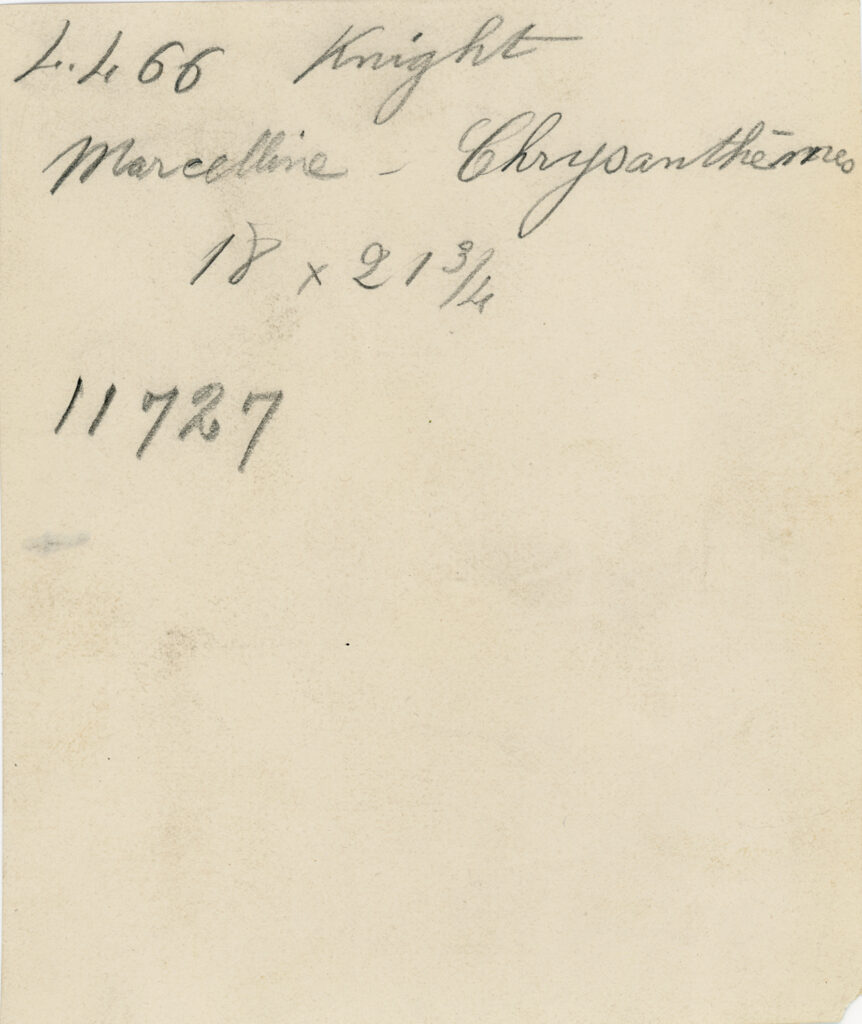 4.4 66 Knight
Marcelline - Chrysanthèmes
18 x 21 3/4
11727